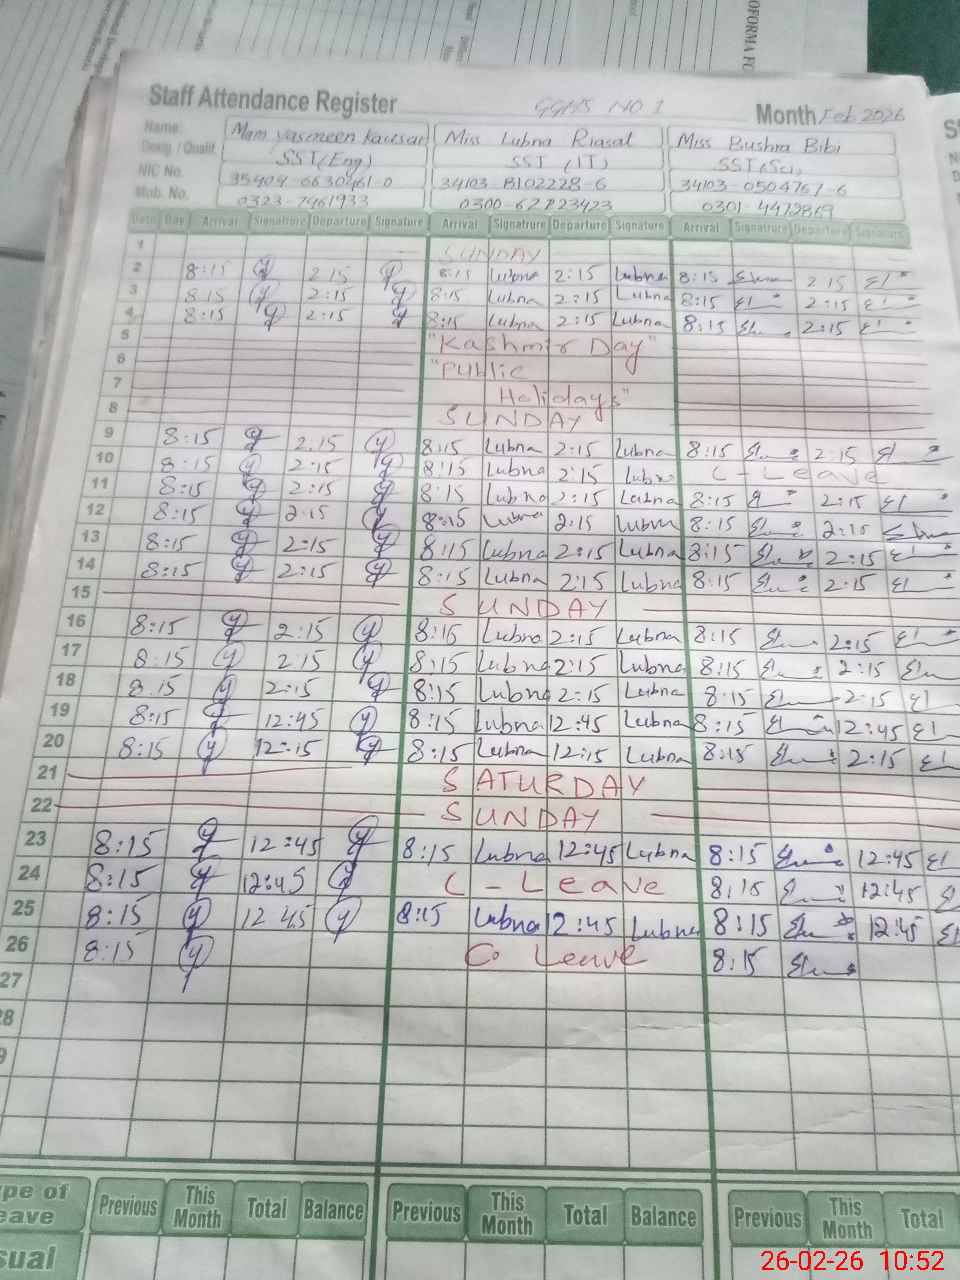 Staff Attendance Register GGHS NO 1 Month Feb 2026
Name: Mam Yasmeen Kausar Miss Lubna Riasat Miss Bushra Bibi
Desig. / Qualif. SST(Eng) SST (IT) SST(Sci)
NIC No.
Mob. No. 0323-7461933 0301-4472869
Date Day Arrival Signature Departure Signature Arrival Signature Departure Signature Arrival Signature Departure Signature
1 SUNDAY
2 8:15 2 15 8:15 Lubna 2:15 Lubna 8:15 2 15
3 8:15 2:15 8:15 Lubna 2:15 Lubna 8:15 2:15
4 8:15 2:15 8:15 Lubna 2:15 Lubna 8:15 2:15
5 "Kashmir Day"
6 "Public
7 Holidays"
8 SUNDAY
9 8:15 2:15 8:15 Lubna 2:15 Lubna 8:15 2:15
10 8:15 2:15 8:15 Lubna 2:15 Lubna C - Leave
11 8:15 2:15 8:15 Lubna 2:15 Lubna 8:15 2:15
12 8:15 2:15 8:15 Lubna 2:15 Lubna 8:15 2:15
13 8:15 2:15 8:15 Lubna 2:15 Lubna 8:15 2:15
14 8:15 2:15 8:15 Lubna 2:15 Lubna 8:15 2:15
15 SUNDAY
16 8:15 2:15 8:15 Lubna 2:15 Lubna 8:15 2:15
17 8:15 2:15 8:15 Lubna 2:15 Lubna 8:15 2:15
18 8:15 2:15 8:15 Lubna 2:15 Lubna 8:15 2:15
19 8:15 12:45 8:15 Lubna 12:45 Lubna 8:15 12:45
20 8:15 12:15 8:15 Lubna 12:15 Lubna 8:15 2:15
21 SATURDAY
22 SUNDAY
23 8:15 12:45 8:15 Lubna 12:45 Lubna 8:15 12:45
24 8:15 12:45 C - Leave 8:15 12:45
25 8:15 12 45 8:15 Lubna 12:45 Lubna 8:15 12:45
26 8:15 C. Leave 8:15
27
Previous This Month Total Balance Previous This Month Total Balance Previous This Month Total
26-02-26 10:52